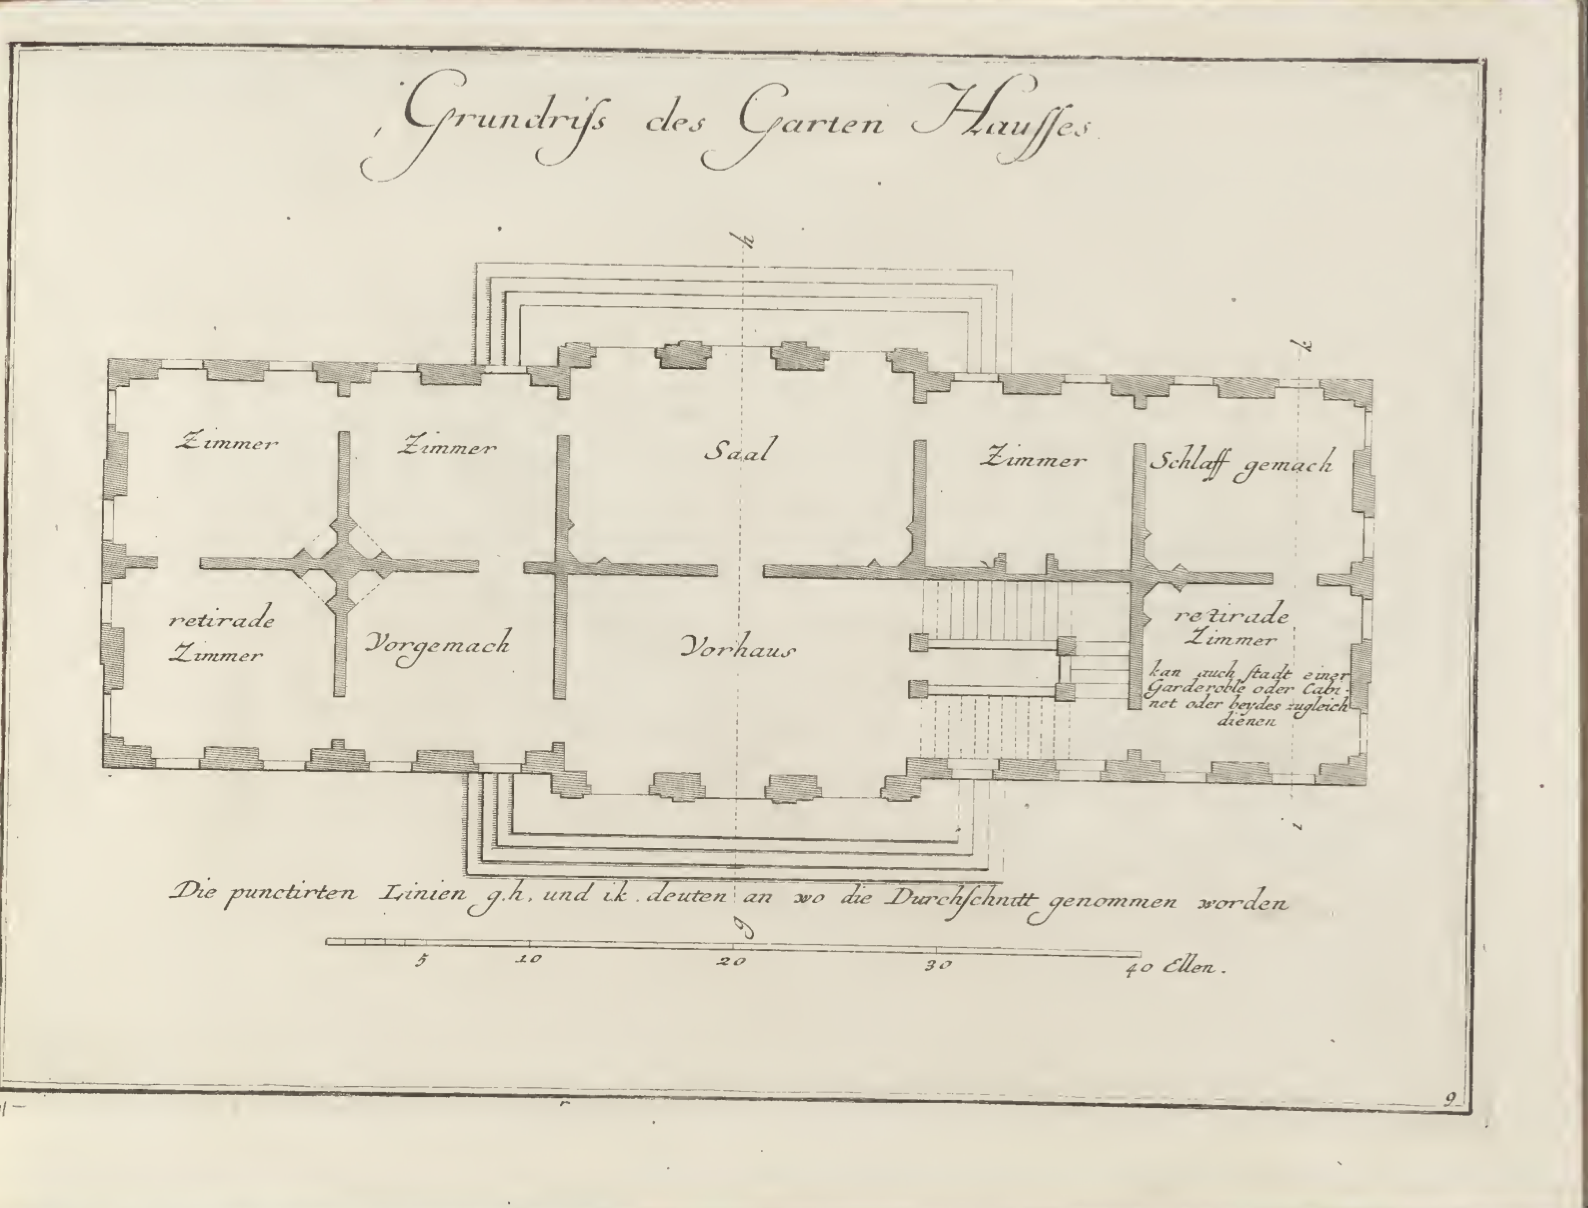 Grundriſs des Garten Hauſſes
h
k
Zimmer
Zimmer
Saal
Zimmer
Schlaff gemach
retirade
Zimmer
Vorgemach
Vorhaus
retirade
Zimmer
kan auch ſtadt einer
Garderobe oder Cabi-
net oder beydes zugleich
dienen
i
Die punctirten Linien g.h. und i.k. deuten an wo die Durchſchnitt genommen worden
g
5 10 20 30 40 Ellen.
9